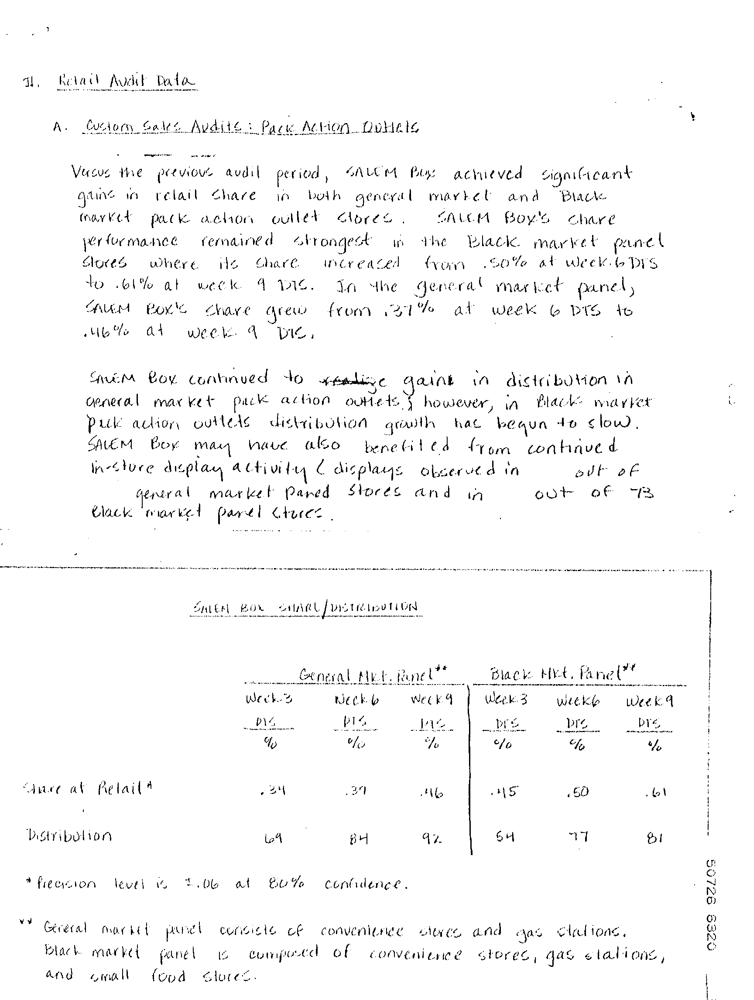 II. Retail Audit Data
A. Custom Sales Audits: Pack Action Outlets
Versus the previous audit period, SALEM Box achieved significant
gains in retail share in both general market and Black
market pack action outlet stores. SALEM Box's share
performance remained strongest in the Black market panel
stores where its share increased from .50% at week 6 DTS
to .61% at week 9 DTS. In the general market panel,
SALEM Box's share grew from .37% at week 6 DTS to
.46% at week 9 DTS.
SALEM Box continued to gains in distribution in
general market pack action outlets; however, in Black market
pack action outlets distribution growth has begun to slow.
SALEM Box may have also benefited from continued
in-store display activity (displays observed in out of
general market paned stores and in out of 73
Black market panel stores.
SALEM BOX SHARE/DISTRIBUTION
General Mkt. Panel** Black Mkt. Panel**
Week 3 Week 6 Week 9 Week 3 Week 6 Week 9
DTS DTS DTS DTS DTS DTS
% % % % % %
Share at Retail* .34 .37 .46 .45 .50 .61
Distribution 69 84 92 54 77 81
*Precision level is ±.06 at 80% confidence.
** General market panel consists of convenience stores and gas stations.
Black market panel is composed of convenience stores, gas stations,
and small food stores.
50726 6320